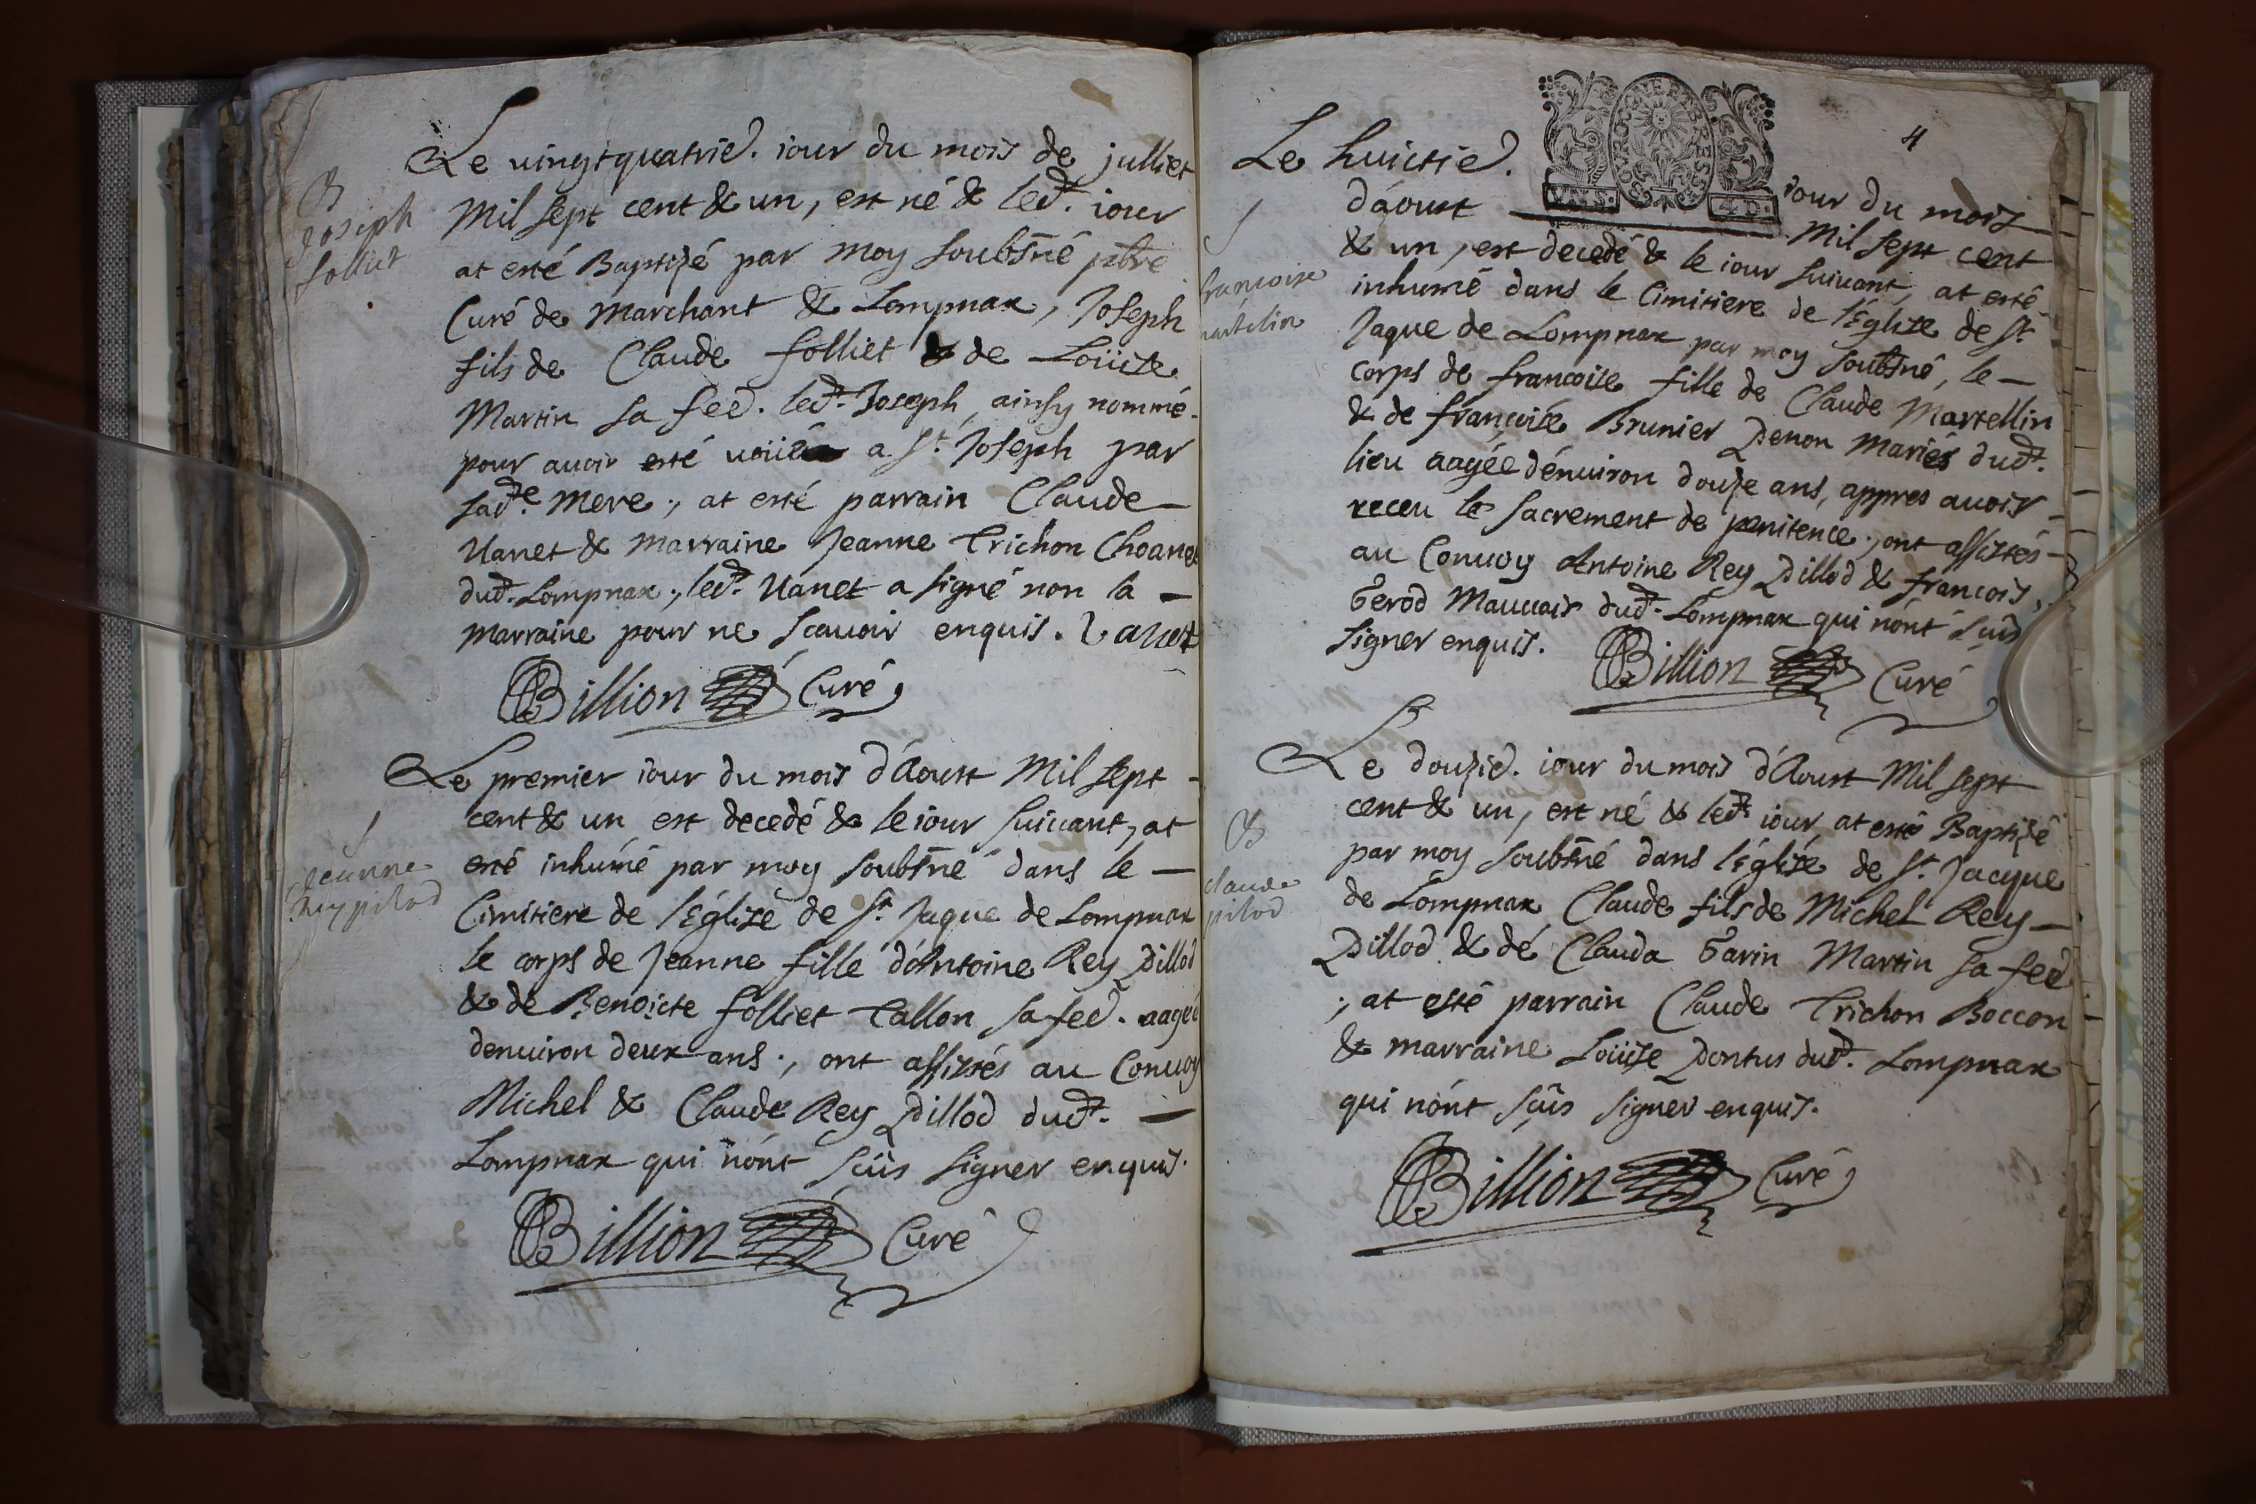 Le vingtquatrie. iour du mois de julliet
B
Joseph
folliet
Mil sept cent & un, est né & led. iour
at esté Baptizé par moy soubsné pbre
Curé de Marchant & Lompnax, Joseph
fils de Claude folliet & de Loüise
Martin sa fee. led. Joseph, ainsy nommé
pour avoir esté voüé a St. Joseph par
sad.e mere ; at esté parrain Claude
Vanet & marraine Jeanne Trichon Choanet
dud. Lompnax ; led. Vanet a signé non la
marraine pour ne scavoir enquis. Vanet
Billion Curé
Le premier iour du mois d'Aoust Mil sept
cent & un est decedé & le iour suivant, at
S
Jeanne
Rey pilod
esté inhumé par moy soubsné dans le
Cimitiere de l'Eglize de St. Jaque de Lompnax
le corps de Jeanne fille d'Antoine Rey Pillod
& de Benoicte folliet Tallon sa fee. aagée
denviron deux ans ; ont assistés au Convoy
Michel & Claude Rey Pillod dud.
Lompnax qui n'ont sçûs signer enquis.
Billion Curé
4
GOURGOGNE ET BRESSE
VN.S. 4.D.
Le huictie. iour du mois
d'aoust Mil sept cent
& un, est decedé & le iour suivant, at esté
S
francoise
martelin
inhumé dans le Cimitiere de l'Eglize de St
Jaque de Lompnax par moy soubsné, le
corps de francoise fille de Claude Martellin
& de françoise Brunier Penon Mariés dud.
lieu aagée d'environ douze ans, appres avoir
receu le sacrement de penitence ; ont assistés
au Convoy Antoine Rey Pillod & francois
Gerod Mauvais dud. Lompnax qui n'ont sçûs
signer enquis.
Billion Curé
Le douzie. iour du mois d'Aoust Mil sept
cent & un, est né & led. iour, at esté Baptizé
B
claude
pilod
par moy soubsné dans l'églize de St. Jacque
de Lompnax Claude fils de Michel Rey
Pillod & de Clauda Garin Martin sa fee
; at esté parrain Claude Trichon Boccon
& marraine Loüise Pontus dud. Lompnax
qui n'ont sçûs signer enquis.
Billion Curé